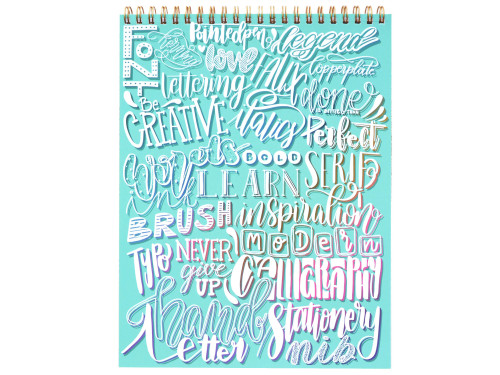 FONT
Pointed pen
legend
love
Copperplate
lettering
FAUX
done
Be
CREATIVE
italics
Perfect
BOLD
SERIF
LEARN
ink
BRUSH
inspiration
MODERN
TYPO
NEVER
give
UP
CALLIGRAPHY
hand
Letter
Stationery
nib